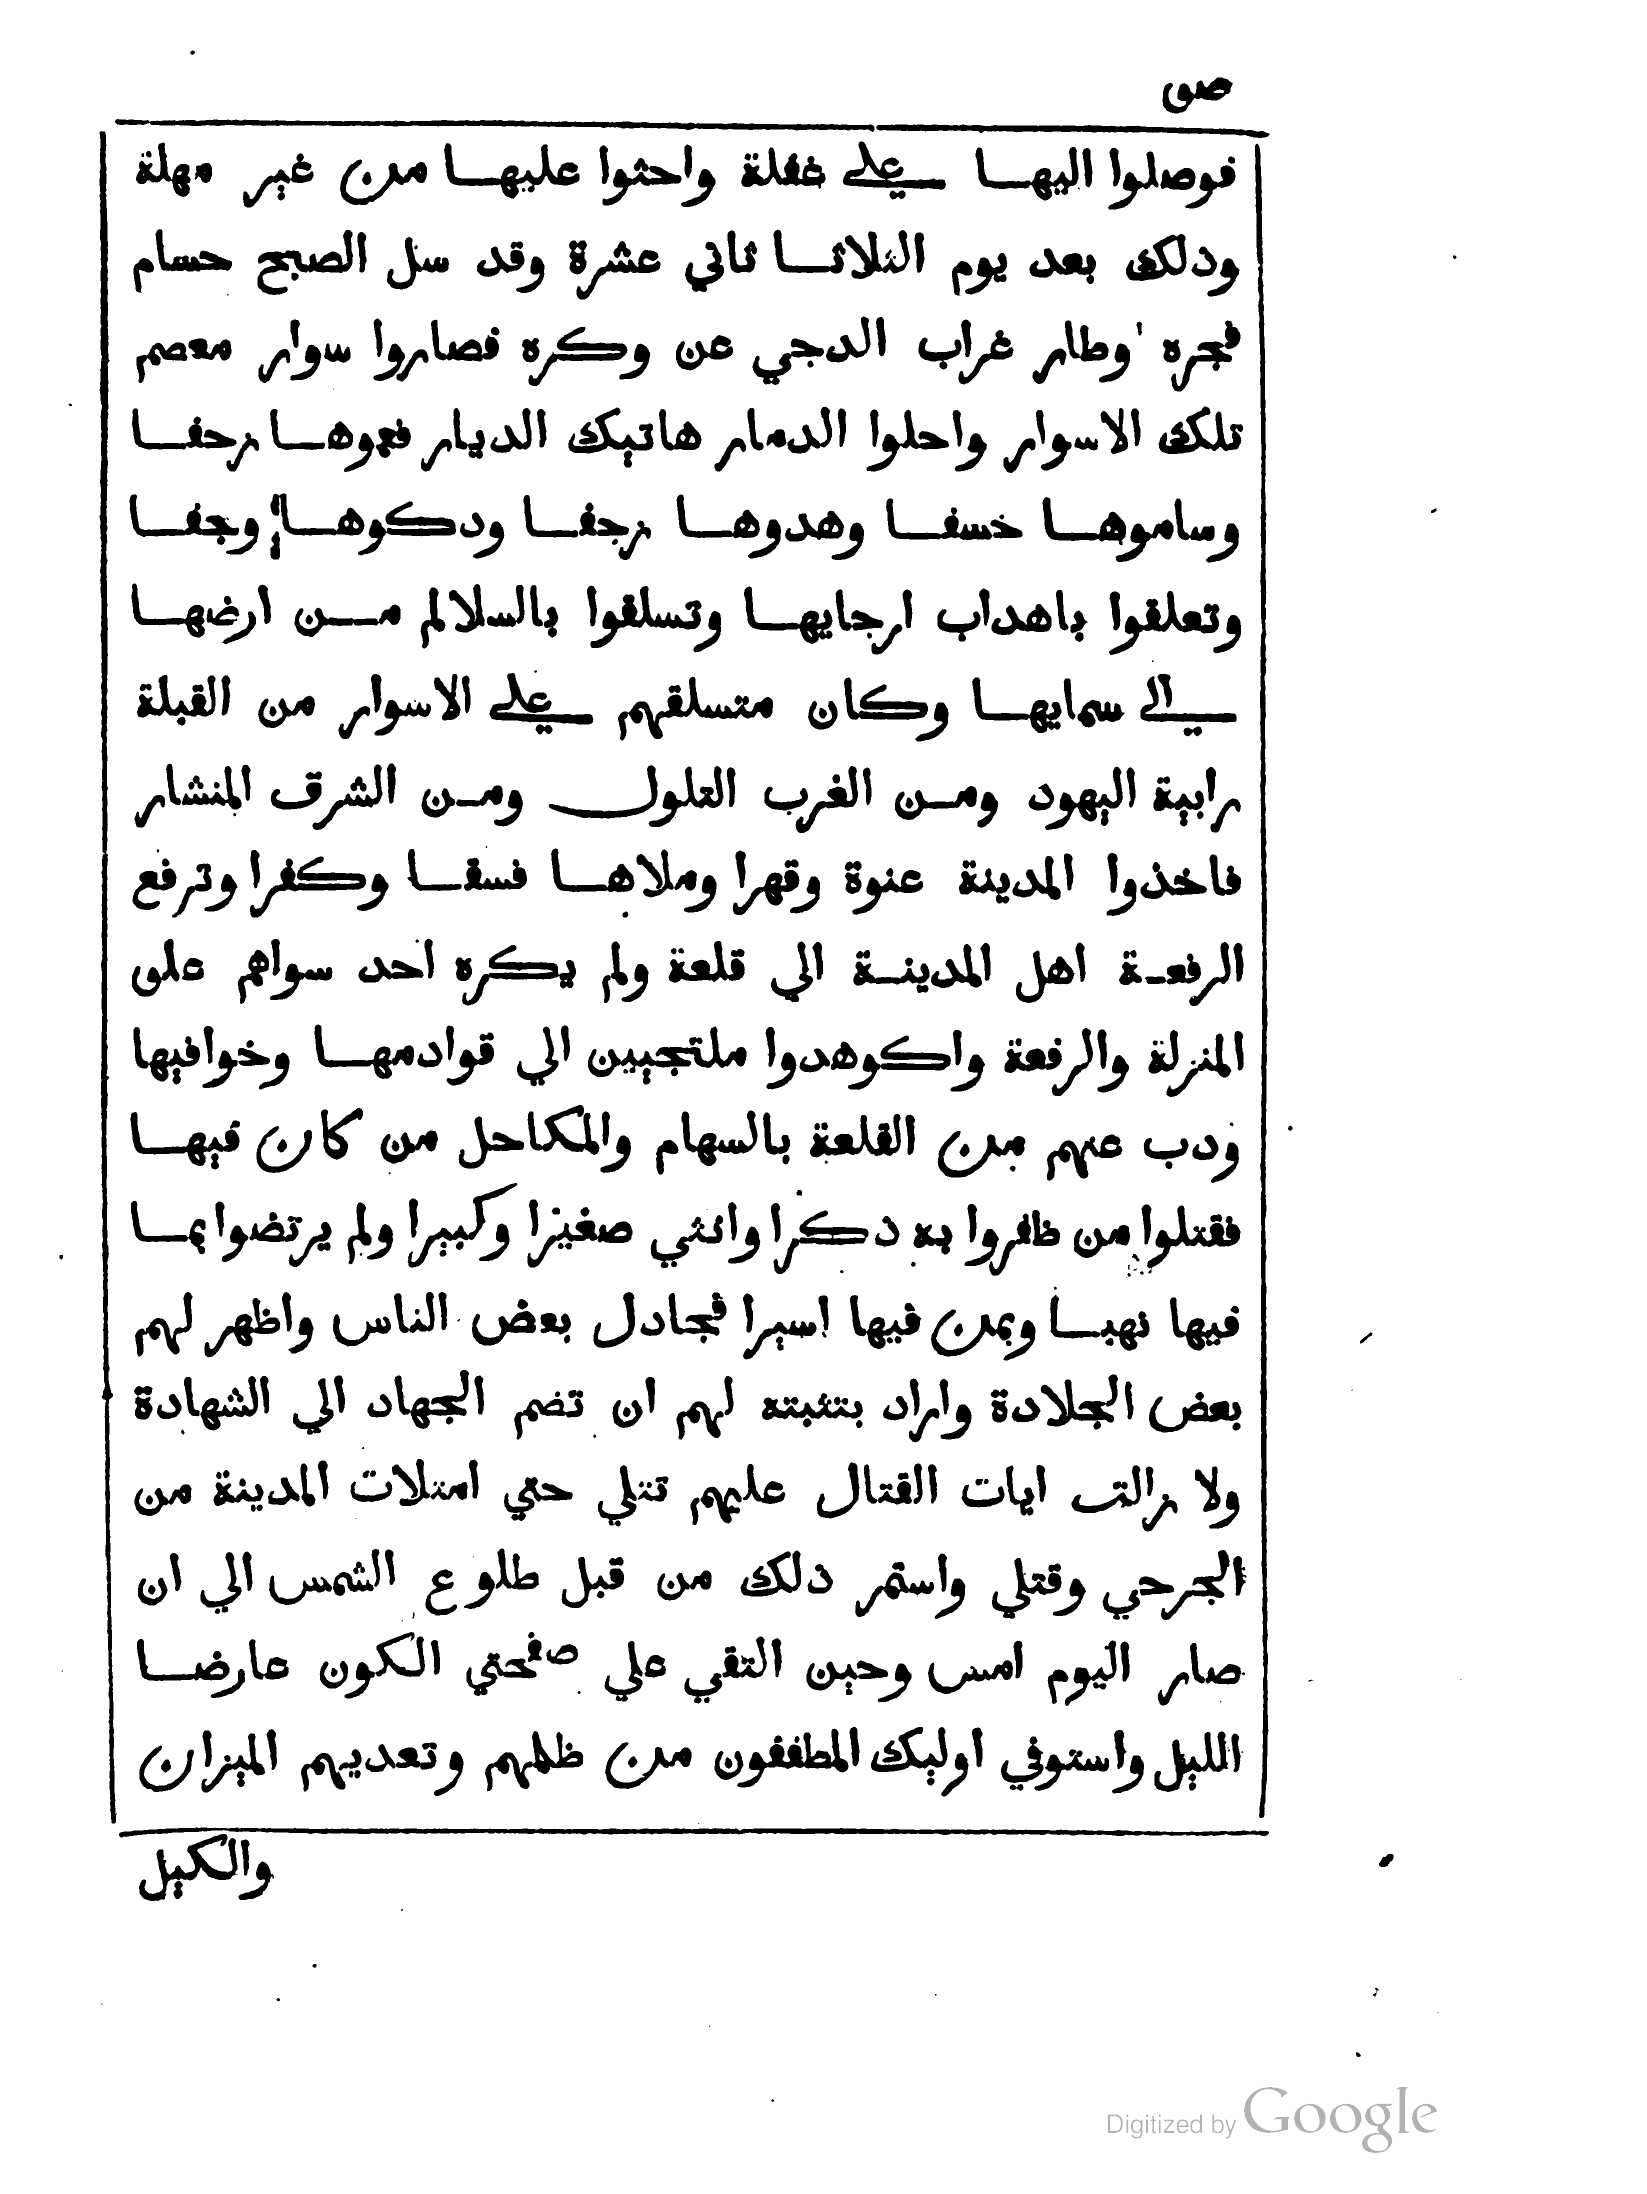 صى
فوصلوا اليها علي غفلة واحثوا عليها من غير مهلة
ودلك بعد يوم الثلاثا ثاني عشرة وقد سل الصبح حسام
فجره وطار غراب الدجي عن وكره فصاروا سوار معصم
تلك الاسوار واحلوا الدمار هاتيك الديار فمحوها زحفا
وساموها خسفا وهدوها رجفا ودكوها وجفا
وتعلقوا باهداب ارجايها وتسلقوا بالسلالم من ارضها
الي سمايها وكان متسلقهم علي الاسوار من القبلة
رابية اليهود ومن الغرب التلول ومن الشرق المنشار
فاخذوا المدينة عنوة وقهرا وملاها فسقا وكفرا وترفع
الرفعة اهل المدينة الي قلعة ولم يكره احد سواهم على
المنزلة والرفعة واكوهدوا ملتجيين الي قوادمها وخوافيها
ودب عنهم من القلعة بالسهام والمكاحل من كان فيها
فقتلوا من ظفروا به دكرا وانثي صغيرا وكبيرا ولم يرتضوا بما
فيها نهبا وبمن فيها اسيرا فجادل بعض الناس واظهر لهم
بعض الجلادة واراد بتثبته لهم ان تضم الجهاد الي الشهادة
ولا زالت ايات القتال عليهم تتلي حتي امتلات المدينة من
الجرحي وقتلي واستمر ذلك من قبل طلوع الشمس الي ان
صار اليوم امس وحين التقي علي صفحتي الكون عارضا
الليل واستوفي اوليك المطففون من ظلمهم وتعديهم الميزان
والكيل
Digitized by Google